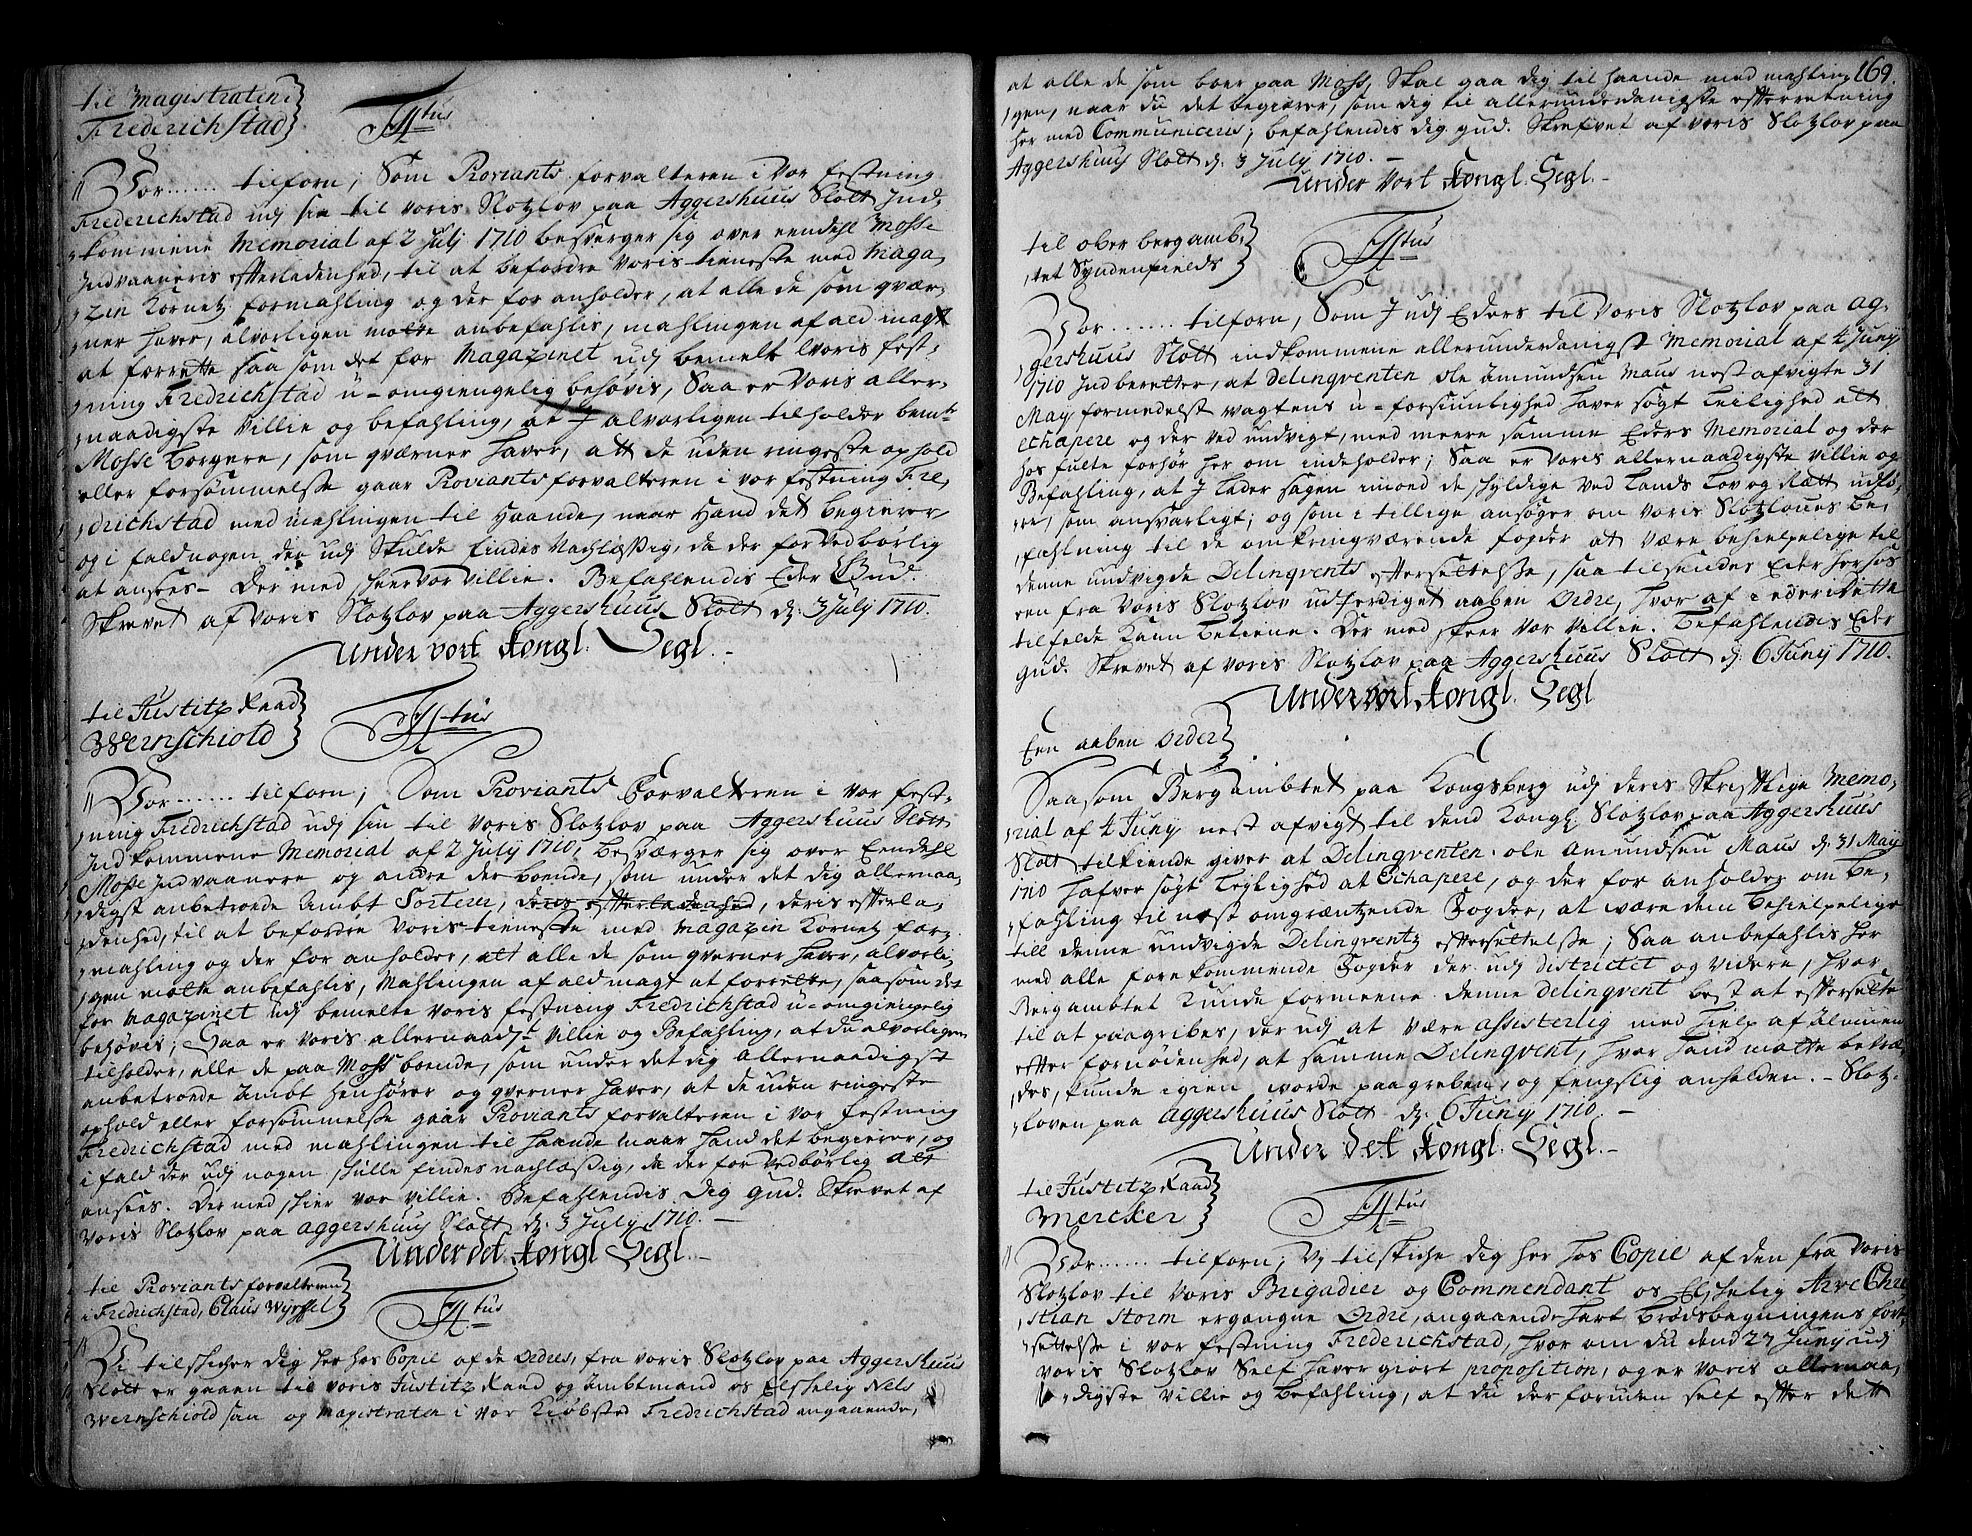 til Magistraten i
Frederichstad
F4tus
Vor ...... tilforn; Som Proviants forvalteren i Vor festning
Frederichstad udj sin til Voris Slotzlov paa Aggershuus Slott Ind,
kommene Memorial af 2 Julj 1710 besverger sig over eendehl Mosse
Indvaaneris efterladenhed, til at befordre Voris tieneste med Maga,
zin Kornetz formahling og der for anholder, at alle de som qvær,
ner hafver, alvorligen motte anbefahlis, mahlingen af ald magt
at forrette saa som det for Magazinet udj bemelte Voris fest,
ning Fredrichstad u-omgiengelig behøvis, Saa er Voris aller,
naadigste Villie og befahling, at I alvorligen tilholder bemte
Mosse borgere, som qværner hafver, att de uden ringeste ophold
eller forsømmelse gaar Proviants forvalteren i vor festning Fre,
drichstad med mahlingen til haande, naar hand det begierer,
og i fald nogen der udj skulde findes Nachleßig, da der for vedbørlig
at ansees. Der med skeer vor Villie. Befahlendis Eder Gud.
Skrevet af Voris Slotzlov paa Aggershuus Slott d: 3 July 1710.
Under vort kongl: Segl.
til Justitz Raad
Wernschiold
F4tus
Vor ...... tilforn; Som Proviants Forvalteren i vor fest,
ning Fredrichstad udj sin til Voris Slotzlov paa Aggershuus Slott
Indkommene Memorial af 2 July 1710, besværger sig over Eendehl
Mosse Indvaanere og andre der boende, som under det dig allernaa,
digst anbetroede Ambt Sorterer, deris efterladenhed, deris efterla,
denhed, til at befordre Voris tieneste med Magazin Kornetz for,
mahling og der for anholder, att alle de som qverner hafver, alvorli,
gen motte anbefahlis, Mahlingen af ald magt at forrette, saasom det
for Magazinet udj bemelte Voris festning Fredrichstad u-omgiengelig
behøvis; Saa er Voris allernaadst Villie og Befahling, at du alvorligen
tilholder, alle de paa Moss boende, som under det dig Allernaadigst
anbetroede Ambt henhører og qverner hafver, at de uden ringeste
ophold eller forsømmelse gaar Proviants forvalteren i vor festning
Fredrichstad med mahlingen til haande naar hand det begierer, og
i fald der udj nogen skulle findes nachleßig, da der for vedbørlig att
ansees. Der med skeer vor Villie. Befahlendis Dig Gud. Skrevet af
Voris Slotzlov paa Aggershuus Slott d: 3 July 1710.
Under det kongl Segl.
til Proviants forvalteren
i Fredrichstad, Claus Wyssel
F4tus
Vi tilskicher dig her hos Copie af de Ordres, fra Voris Slotzlov paa Aggershuus
Slott er gaaen til Voris Justitz Raad og Ambtmand os Elskelig Nels
Wernschiold saa og Magistraten i Vor Kiøbsted Fredrichstad angaaende,
169.
at alle de som boer paa Moss, Skal gaa dig til haande med mahlin,
gen, naar du det begierer, som dig til allerunderdanigste efterretning
her med Communiceris; befahlendis dig Gud. Skrefvet af Voris Slotzlov paa
Aggershuus Slott d: 3 July 1710.
Under Vort kongl. Segl.
til ober bergamb,
tet Syndenfields
F4tus
Vor ...... tilforn, Som I udj Eders til Voris Slotzlov paa Ag,
gershuus Slott indkommene allerunderdanigst Memorial af 4 Juny
1710 Indberetter, at Delinqventen Ole Amundsen Maus nest afvigte 31
May formedelst vagtens u-forsiunlighed hafver søgt Leilighed att
echapere og der ved undvigt, med meere samme Eders Memorial og der
hos fulte forhør her om indeholder; Saa er Voris allernaadigste Villie og
Befahling, at I lader sagen imod de skyldige ved Lands Lov og Rætt udfø,
re, som ansvarligt; og som i tillige ansøger om Voris Slotzloves be,
fahlning til de omkringværende fogder at være behielpelige til
denne undvigde Delinqvents eftersettelse, saa tilsendes Eder herhos
een fra Voris Slotzlov udferdiget aaben Ordre, hvor af i eder i dette
tilfelde kand betiene. Der med skeer vor Villie. Befahlendis Eder
Gud. Skrevet af Voris Slotzlov paa Aggershuus Slott d: 6 Juny 1710.
Under vort kongl. Segl
Een aaben Order
Saasom Bergambtet paa Kongsberg udj deris Skriftlige Memo,
rial af 4 Juny nest afvigt til dend Kongl: Slotzlov paa Aggershuus
Slott tilkiende giver at Delinqventen Ole Amundsen Maus d: 31 May
1710 hafver søgt Lejlighed at Echapere, og der for anholder om be,
fahling til nest omgræntzende Fogder, at være dem behielpelige
till denne undvigde Delinqventz eftersettelse; Saa anbefahlis her
med alle forekommende Fogder der udj districtet og videre, hvor
Bergambtet kunde formeene denne Delinqvent best at eftersettes
til at paagribes, der udj at være assisterlig med hielp af Almuen
efter fornødenhed, at samme Delinqvent, hvor hand motte betræ,
des, kunde igien worde paagreben, og fengslig anholden. Slotz,
loven paa Aggershuus Slott d: 6 Juny 1710.
Under det kongl. Segl.
til Justitz Raad
Mercker
F4tus
Vor ...... tilforn; Vi tilskiche dig her hos Copie af den fra Voris
Slotzlov til Voris Brigadier og Commendant os Elskelig Arve Chri
stian Storm ergangne Ordre, angaaende hart brødsbagningens fort,
settelse i vor festning Frederichstad, hvor om du dend 27 Juny udj
Voris Slotzlov Self hafver giort proposition, og er Voris allernaa,
digste Villie og befahling, at du der foruden self efter dett